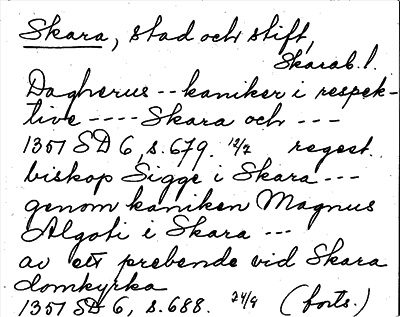 Skara, stad och stift,
Skarab. l.
Dagherus -- kaniker i respek-
tive ---- Skara och ---
1351 SD 6, s. 679. 12/2 regest.
biskop Sigge i Skara ---
genom kaniken Magnus
Algoti i Skara ---
av ett prebende vid Skara
domkyrka
1351 SD 6, s. 688. 24/9 (forts.)